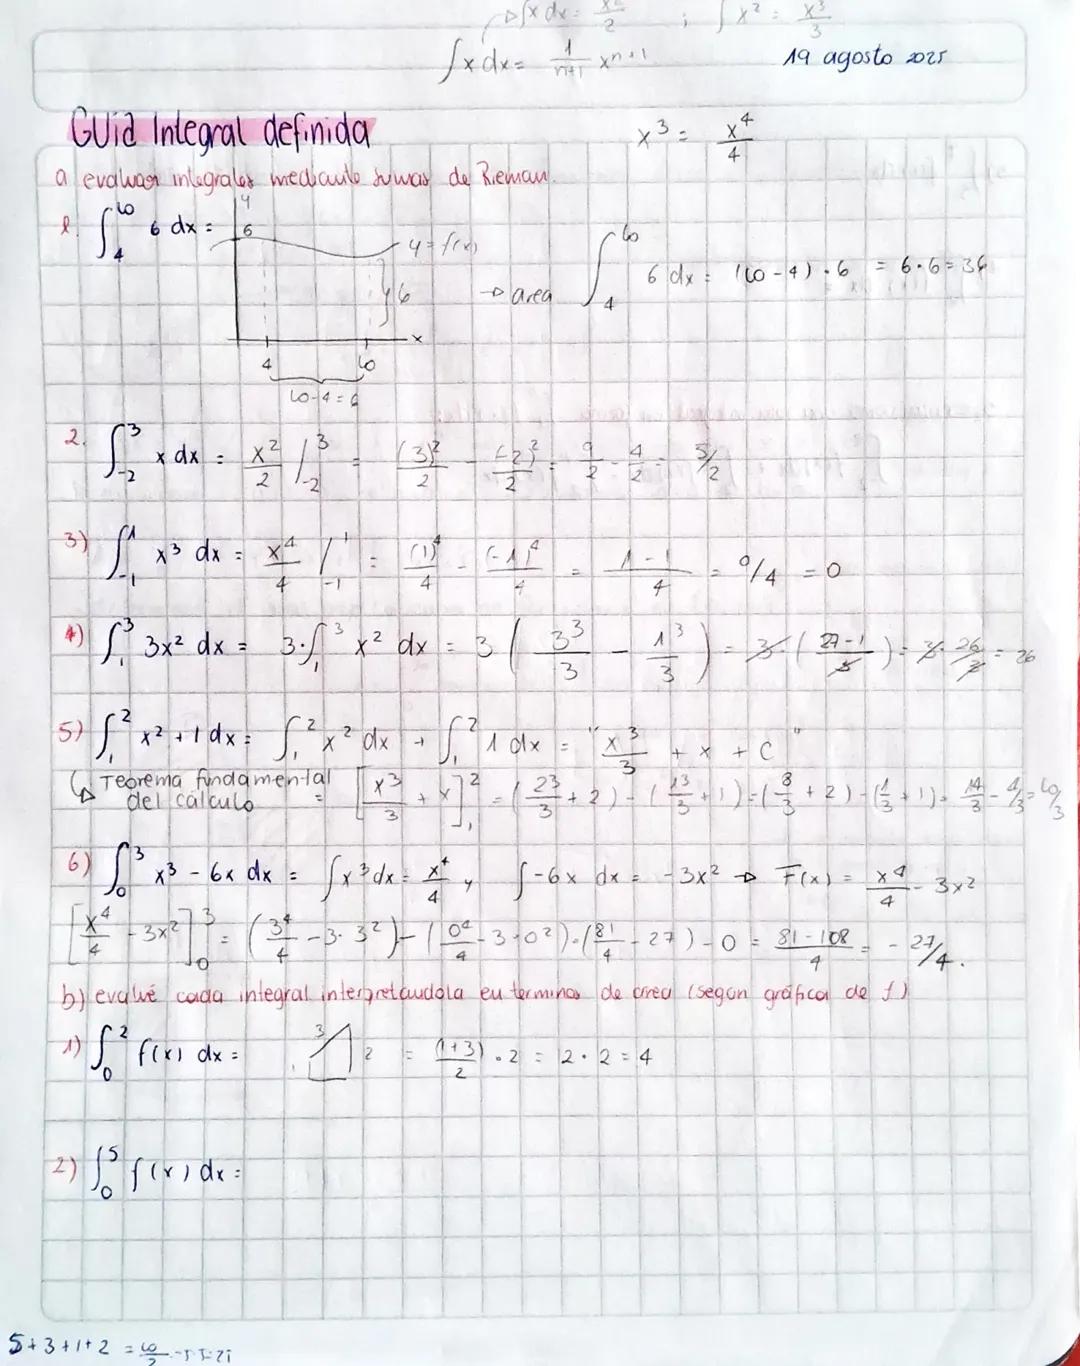 ∫x dx = x²/2 ; ∫x² = x³/3
∫x dx = 1/n+1 x^n+1
19 agosto 2025
Guia Integral definida
x³ = x⁴/4
a evaluar integrales mediante sumas de Rieman.
1. ∫₄¹⁰ 6 dx =
y
6
y = f(x)
6
x
4 10
10-4 = 6
→ area ∫₄¹⁰ 6 dx = (10-4) · 6 = 6·6 = 36
2. ∫₋₂³ x dx = x²/2 /₋₂³ = (3)²/2 - (-2)²/2 = 9/2 - 4/2 = 5/2
3) ∫₋₁¹ x³ dx = x⁴/4 /₋₁¹ = (1)⁴/4 - (-1)⁴/4 = 1-1/4 = 0/4 = 0
4) ∫₁³ 3x² dx = 3·∫₁³ x² dx = 3 (3³/3 - 1³/3) = 3·(27-1/3) = 3·26/3 = 26
5) ∫₁² x² + 1 dx = ∫₁² x² dx + ∫₁² 1 dx = "x³/3 + x + C"
↳ Teorema fundamental
del cálculo = [x³/3 + x]₁² = (2³/3 + 2) - (1³/3 + 1) = (8/3 + 2) - (1/3 + 1) = 14/3 - 4/3 = 10/3
6) ∫₀³ x³ - 6x dx = ∫x³dx = x⁴/4 y ∫-6x dx = -3x² → F(x) = x⁴/4 - 3x²
[x⁴/4 - 3x²]₀³ = (3⁴/4 - 3·3²) - (0⁴/4 - 3·0²) = (81/4 - 27) - 0 = 81-108/4 = -27/4.
b) evalué cada integral interpretandola en terminos de area (segun gráfica de f)
1) ∫₀² f(x) dx = 1 3 2 = (1+3)/2 · 2 = 2 · 2 = 4
2) ∫₀⁵ f(x) dx =
5+3+1+2 = 10/2